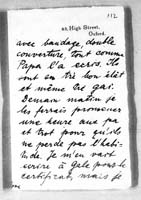 112
High Street,
Oxford.
avec bandage, double
couverture, tout comme
Papa l'a écros. Ils
sont en très bon état
et même très gai.
Demain matin je
les ferais promener
une heure aux pas
et trot pour qu'ils
ne perde pas l'habi-
tude. Je m'en vais
écrire à Gale pour le
certificat, mais je